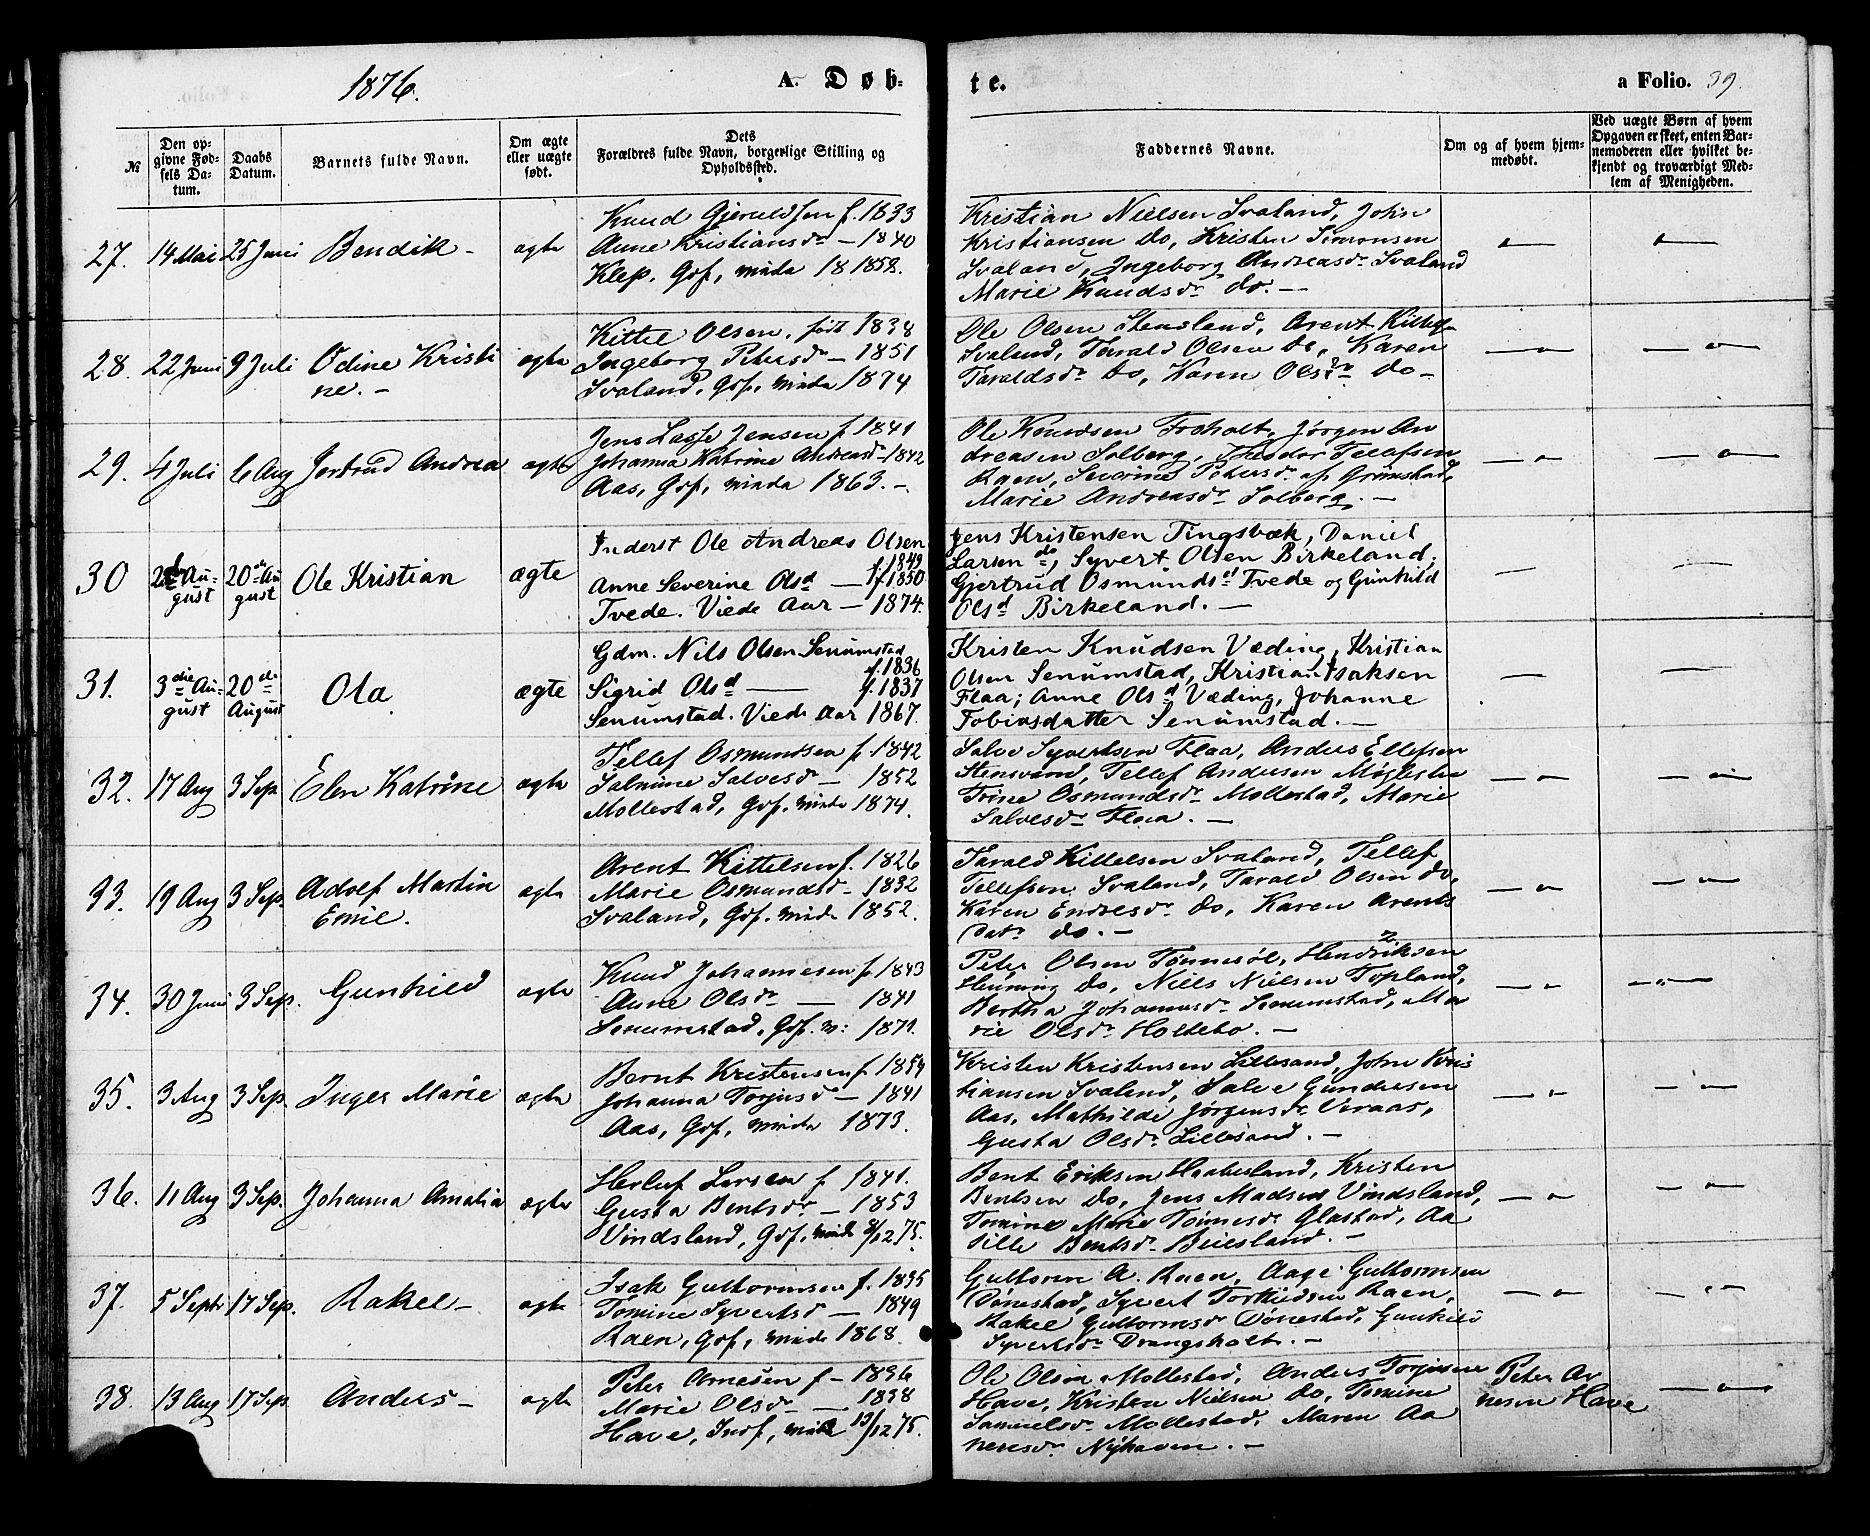 1876.
A. Døb-
te.
a Folio. 39.
№
Den op-
givne Fød-
sels Da-
tum.
Daabs
Datum.
Barnets fulde Navn.
Om ægte
eller uægte
født.
Dets
Forældres fulde Navn, borgerlige Stilling og
Opholdssted.
Faddernes Navne.
Om og af hvem hjem-
medøbt.
Ved uægte Børn af hvem
Opgaven er skeet, enten Bar-
nemoderen eller hvilket be-
kjendt og troværdigt Med-
lem af Menigheden.
27. 14 Mai 25 Juni Bendik - ægte
Knud Gjeruldsen f. 1833
Anne Kristiansdr - 1840
Klep, Gdf, viede 18 1858.
Kristian Nielsen Svaland, John
Kristiansen do, Kristen Simonsen
Svaland, Ingeborg Andreasdr Svaland
Marie Knudsdr do. -
28. 22 Juni 9 Juli Odine Kristi
ne. - ægte
Kittel Olsen, født 1838
Ingeborg Petersdr - 1851
Svaland, Gdf, viede 1874
Ole Olsen Stensland, Arent Kittels.
Svaland, Tarald Olsen do, Karen
Taraldsdr do, Karen Olsdr do -
29. 4 Juli 6 Aug Jertrud Andrea ægte
Jens Lasse Jensen f 1841
Johanna Katrine Andreasd - 1842
Aas, Gdf, viede 1863. -
Ole Knudsen Froholt, Jørgen An
dreasen Solberg, Theodor Tellefsen
Raen, Severine Petersdr af Grimstad,
Marie Andreasdr Solberg. -
30 Au-
gust 20de Au
gust Ole Kristian ægte
Inderst Ole Andreas Olsen
f 1849
Anne Severine Olsd - f 1850
Tvede. Viede Aar - 1874.
Jens Kristensen Tingsbæk, Daniel
Larsen do, Syvert Olsen Birkeland,
Gjertrud Osmundsd Tvede og Gunhild
Olsd Birkeland. -
31. 3die Au-
gust 20de
August Ola ægte
Gdm. Nils Olsen Senumstad
f. 1836
Sigrid Olsd - f. 1837
Senumstad. Viede Aar 1867.
Kristen Knudsen Væding, Kristian
Olsen Senumstad, Kristian Isaksen
Flaa, Anne Olsd Væding, Johanne
Tobiasdatter Senumstad. -
32. 17 Aug 3 Sep Elen Katrine ægte
Tellef Osmundsen f. 1842
Salmine Salvesdr - 1852
Mollestad, Gdf, viede 1874.
Salve Syvertsen Flaa, Anders Ellefsen
Stensvand, Tellef Andersen Møglestu
Trine Osmundsdr Mollestad, Marie
Salvesdr Flaa. -
33. 19 Aug 3 Sep. Adolf Martin
Emil. ægte
Arent Kittelsen f. 1826
Marie Osmundsd - 1832
Svaland, Gdf, viede 1852.
Tarald Kittelsen Svaland, Tellef
Tellefsen Svaland, Tarald Olsen do,
Karen Endresdr do, Karen Arents
datr do. -
34. 30 Juni 3 Sep. Gunhild ægte
Knud Johannesen f 1843
Anne Olsdr - 1841
Senumstad, Gdf. v: 1871.
Peter Olsen Tønnesøl, Hendriksen
Henning do, Niels Nielsen Topland,
Bertha Johannesdr Senumstad, Ma
rie Olsdr Holtebo. -
35. 3 Aug 3 Sep. Inger Marie ægte
Bernt Kristensen f 1854
Johanna Torjusd - 1841
Aas, Gdf, viede 1873.
Kristen Kristensen Lillesand, John Kris
tiansen Svaland, Salve Gundersen
Aas, Mathilde Jørgensdr Veraas,
Gusta Olsdr Lillesand. -
36. 11 Aug 3 Sep. Johanna Amalia ægte
Herluf Larsen f 1841.
Gusta Bentsdr - 1853
Vindsland, Gdf, viede 2/12 75.
Bent Eriksen Haabesland, Kristen
Bentsen do, Jens Madsen Vindsland,
Tomine Marie Tønnesdr Glastad, Aa
sille Bentsdr Beiesland. -
37. 5 Septr 17 Sep. Rakel - ægte
Isak Guttormsen f. 1835
Tomine Syvertsd - 1849
Raen, Gdf, viede 1868.
Guttorm A. Raen, Aage Guttormsen
Dønestad, Syvert Torkildsen Raen,
Rakel Guttormsdr Dønestad, Gunhild
Syvertsdr Drangsholt. -
38. 13 Aug 17 Sep Anders - ægte
Peter Arnesen f - 1836
Marie Olsdr - 1838
Have, Indf, viede 13/12 75.
Ole Olsen Mollestad, Anders Torjusen
Have, Kristen Nielsen do, Tomine
Samuelsdr Mollestad, Maren Aa
nensdr Nyhaven. -
Peter Ar
nesen Have